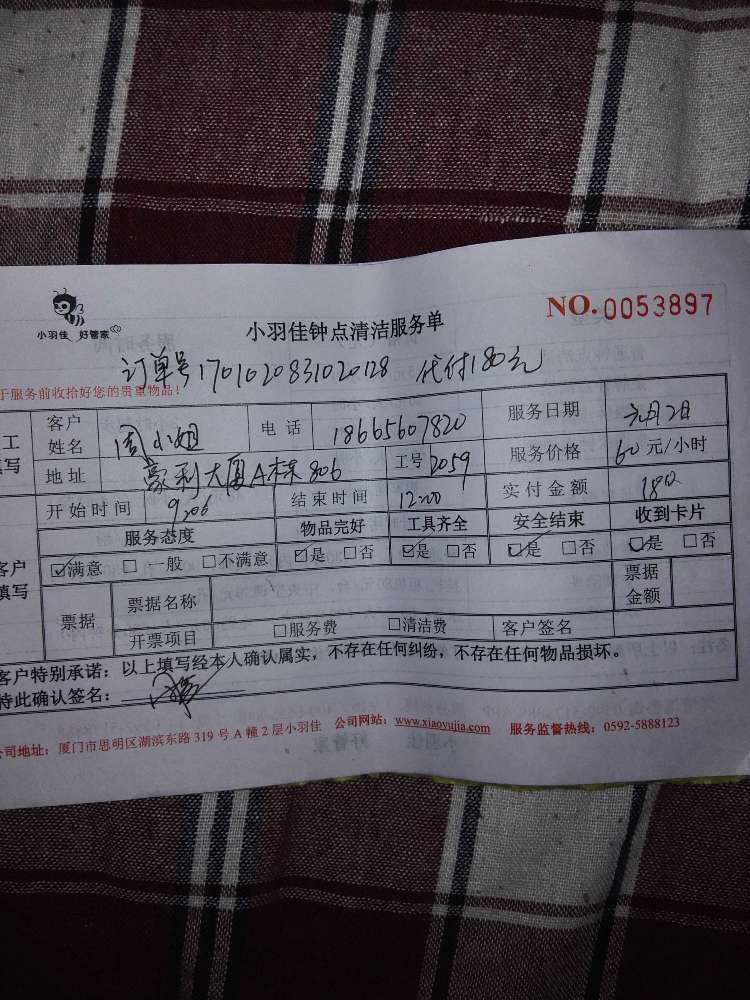 小羽佳 好管家
小羽佳钟点清洁服务单
NO.0053897
订单号1701020831020128 代付180元
于服务前收拾好您的贵重物品!
工
填写
客户姓名 周小姐 电话 18665607820 服务日期 元月2日
地址 豪利大厦A栋806 工号 2059 服务价格 60元/小时
开始时间 9:06 结束时间 12:00 实付金额 180
客户
填写
服务态度 物品完好 工具齐全 安全结束 收到卡片
☑满意 □一般 □不满意 ☑是 □否 ☑是 □否 ☑是 □否 ☑是 □否
票据 票据名称 票据金额
开票项目 □服务费 □清洁费 客户签名
客户特别承诺:以上填写经本人确认属实,不存在任何纠纷,不存在任何物品损坏。
特此确认签名:
公司地址:厦门市思明区湖滨东路 319 号 A 幢 2 层小羽佳 公司网站:www.xiaoyujia.com 服务监督热线:0592-5888123